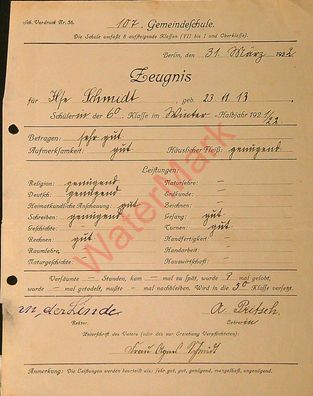 Sch. Vordruck Nr. 56.
107. Gemeindeschule.
Die Schule umfaßt 8 aufsteigende Klassen (VII bis I und Oberklasse).
Berlin, den 31. März 1922
Zeugnis
für Ilse Schmidt geb. 23 11 13
Schülerin der 6c Klasse im Winter-Halbjahr 1921/22
Betragen: sehr gut
Aufmerksamkeit: gut Häuslicher Fleiß: genügend
Leistungen:
Religion: genügend Naturlehre: –
Deutsch: genügend Erdkunde: –
Heimatkundliche Anschauung: gut Zeichnen: –
Schreiben: genügend Gesang: gut
Geschichte: – Turnen: gut
Rechnen: gut Handfertigkeit: –
Raumlehre: – Handarbeit: –
Naturgeschichte: – Hauswirtschaft: –
Versäumte – Stunden, kam – mal zu spät, wurde ? mal gelobt,
wurde – mal getadelt, mußte – mal nachbleiben. Wird in die 5c Klasse versetzt.
v. der Linde A Pretsch
Rektor. Lehrer
Unterschrift des Vaters (oder des zur Erziehung Verpflichteten):
Frau Agnes Schmidt
Anmerkung: Die Leistungen werden beurteilt als: sehr gut, gut, genügend, mangelhaft, ungenügend.
WaterMark